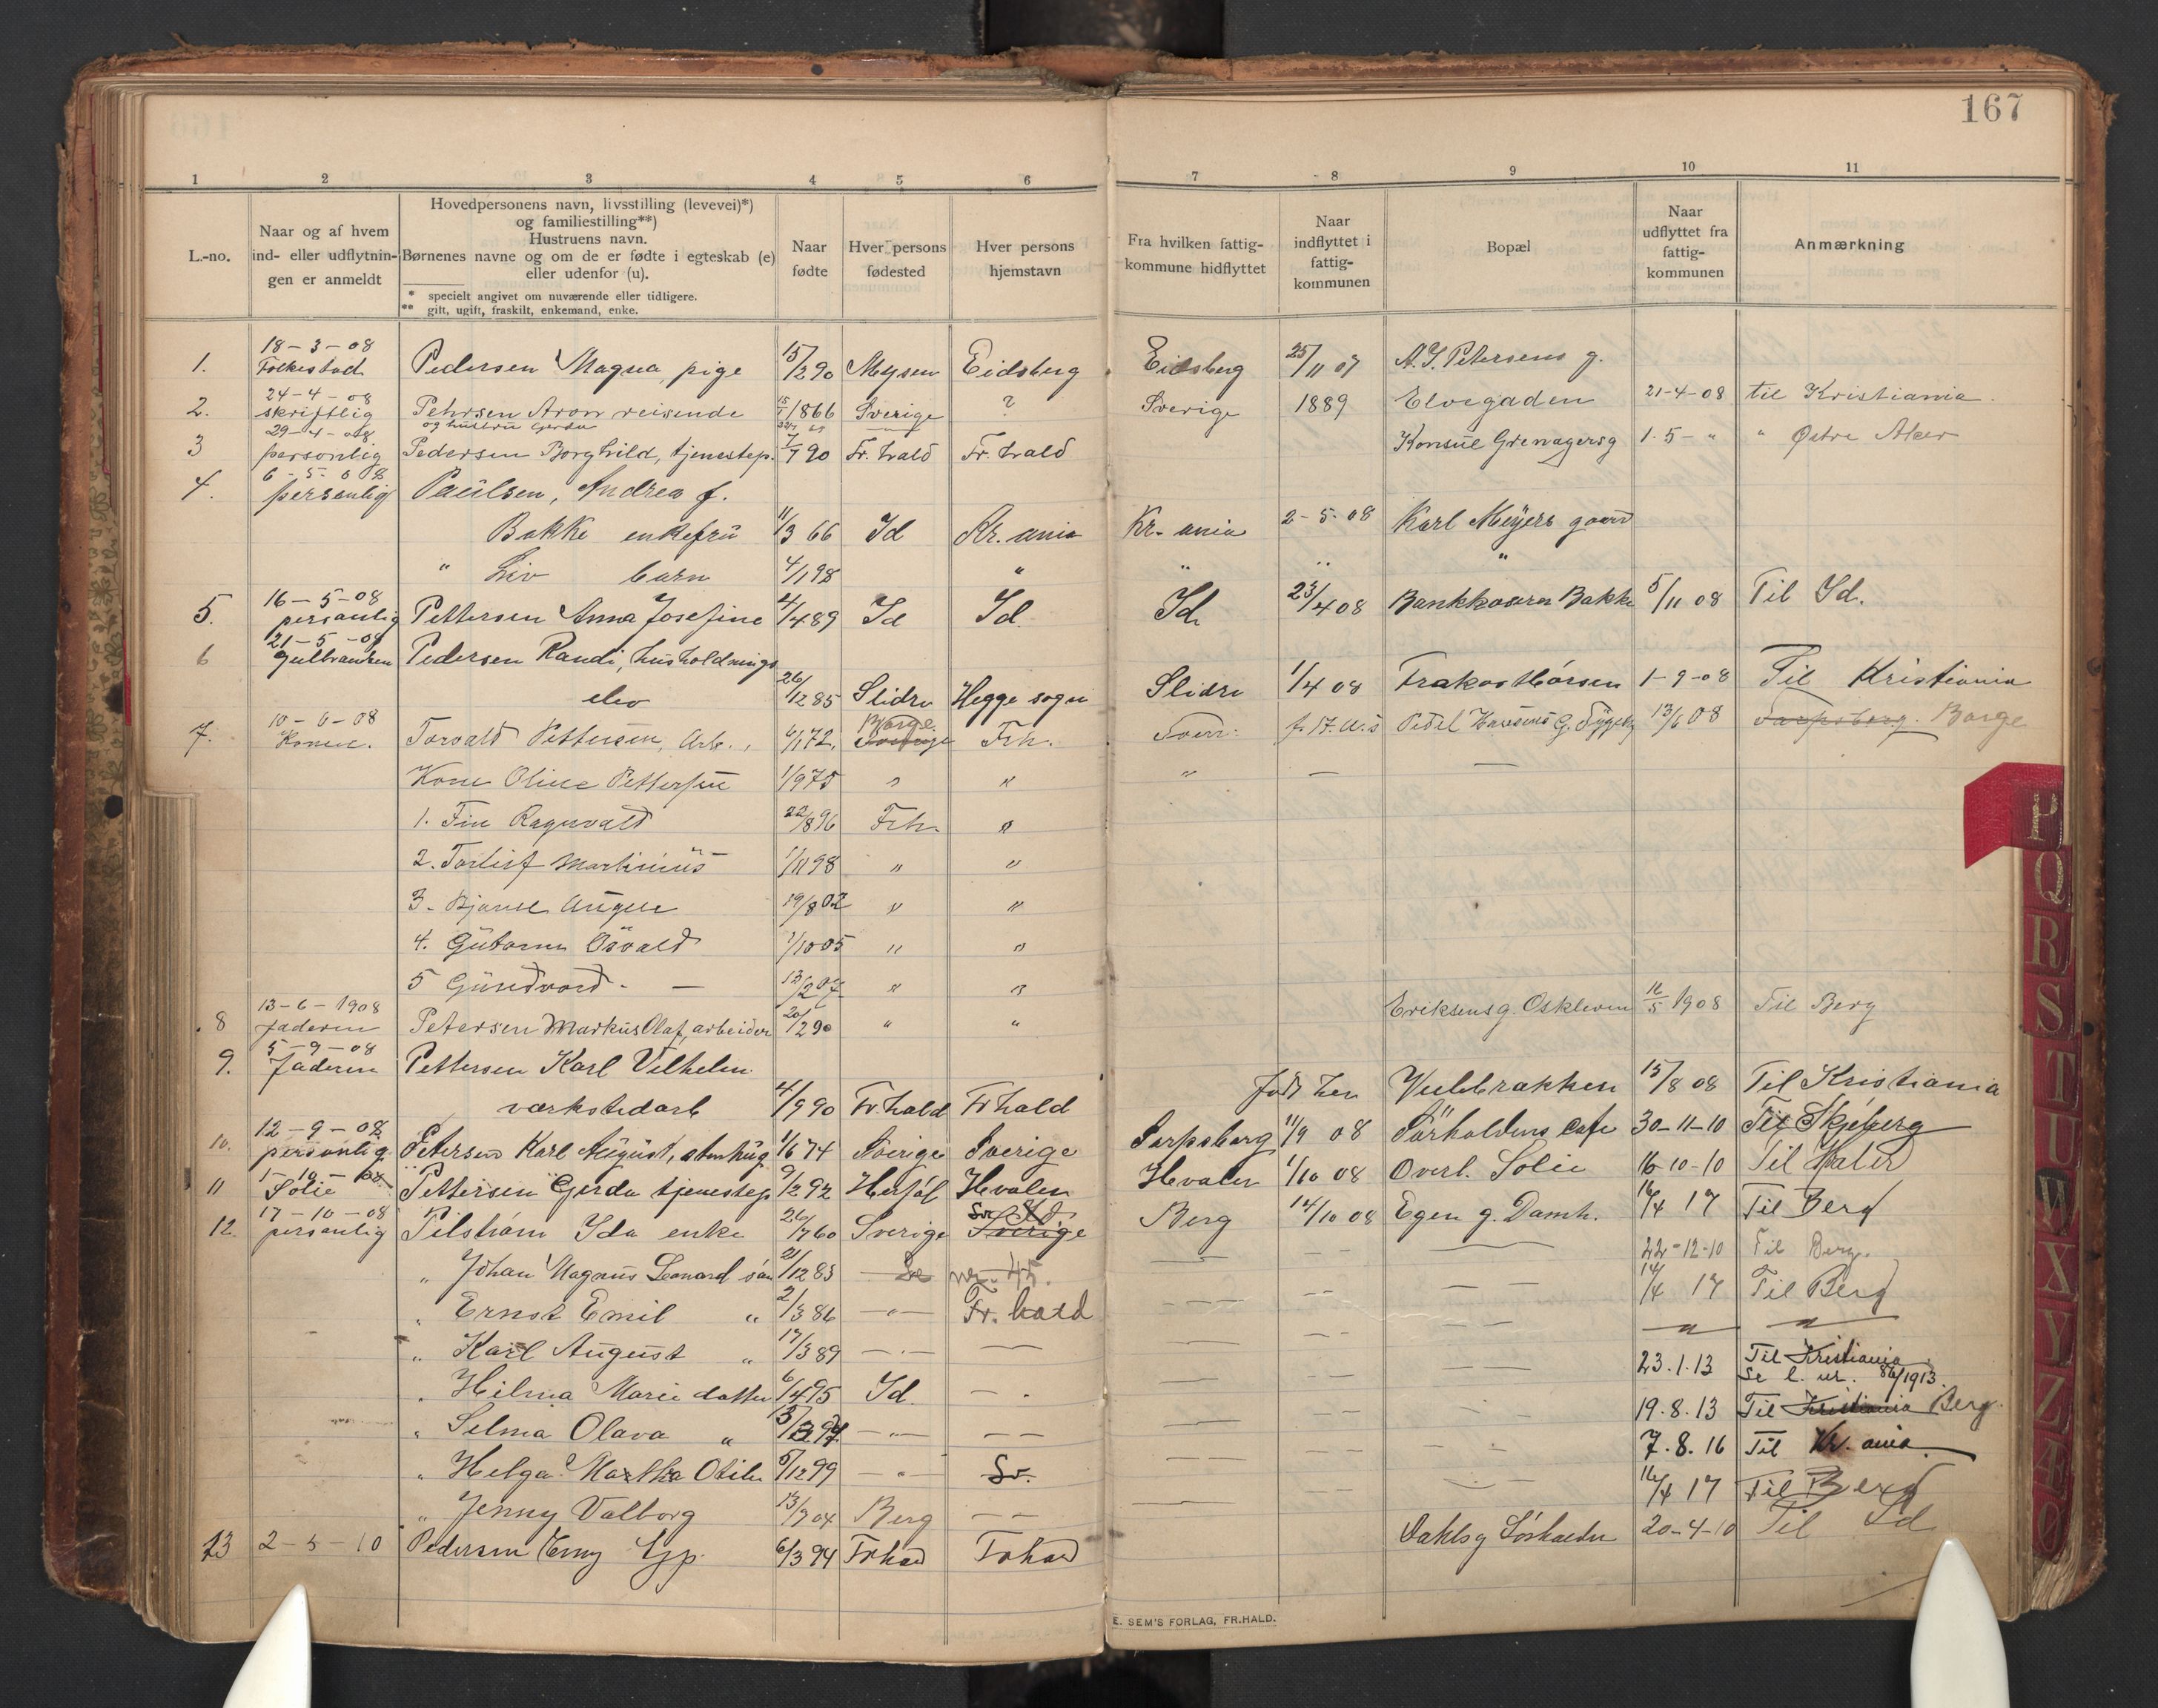 167
1 2 3 4 5 6 7 8 9 10 11
L.-no.
Naar og af hvem ind- eller udflytnin-gen er anmeldt
Hovedpersonens navn, livsstilling (levevei)*)
og familiestilling**)
Hustruens navn.
Børnenes navne og om de er fødte i egteskab (e)
eller udenfor (u).
* specielt angivet om nuværende eller tidligere.
** gift, ugift, fraskilt, enkemand, enke.
Naar fødte
Hver persons fødested
Hver persons hjemstavn
Fra hvilken fattig-kommune hidflyttet
Naar indflyttet i fattig-kommunen
Bopæl
Naar udflyttet fra fattig-kommunen
Anmærkning
18-3-08
1. Folkestad Pedersen Magna, pige 15/2 90 Mysen Eidsberg Eidsberg 25/11 07 A. J. Petersens g.
24-4-08
2. skriftlig Petersen Aron reisende 1866 Sverige ? Sverige 1889 Elvegaden 21-4-08 til Kristiania.
og hustru Gerda
29-4-08
3 personlig Pedersen Borghild, tjenestep. 90 Fr.hald Fr.hald Konsul Grenagersg 1.5-" " Østre Aker
6-5-08
4. personlig Paulsen, Andrea f.
Bakke enkefru 11/3 66 Id Kr.ania Kr.ania 2-5-08 Karl Meyers gaard
" Liv barn 4/1 98 " " " "
16-5-08
5. personlig Pettersen Anna Josefine 4/4 89 Id Id. Id. 23/4 08 Bankkaserer Bakke 5/11 08 Til Id.
21-5-08
6 Gulbransen Pedersen Randi, husholdnings
elev 26/12 85 Slidre Hegge sogn Slidre 1/4 08 1-9-08 Til Kristiania
10-6-08
7. Konen. Torvald Pettersen, Arb., 6/1 72, Sverige Borge. Frh. 13/6 08 Sarpsborg. Borge
Kone Oline Pettersen 1/9 75 " " " — —
1. Fin Ragnvald 22/8 96 Frh. "
2. Torleif Martinius 1/11 98 " "
3. Bjarne August 19/8 02 " "
4. Gutorm Osvald 1/10 05 " "
5 Gundvord - — 13/2 07 " "
13-6-1908
8 Jaderen Petersen Markus Olaf, arbeider 20/2 90 " " Eriksens g. Oskleven 16/5 1908 Til Berg
5-9-08
9. Jaderen Pettersen Karl Vilhelm
værkstedarb 4/9 90 Fr.hald Fr hald født her 15/8 08 Til Kristiania
12-9-08
10. personlig. Petersen Karl August, stenhug 1/6 74 Sverige Sverige Sarpsborg 11/9 08 Sørhaldens Cafe 30-11-10 Til Skjeberg
1-10-08
11 Solie Pettersen Gerda tjenestep 9/2 92 Herføl Hvaler Hvaler 1/10 08 Overl. Solie 16-10-10 Til Hvaler
17-10-08
12. personlig Pilstrøm Ida enke 26/7 60 Sverige Sverige Berg 14/10 08 Egen g. Damh. 16/4 17 Til Berg
" Johan Magnus Leonard søn 21/12 83 — 22-12-10 Til Berg.
" Ernst Emil " 2/3 86 —"— Fr.hald 16/4 17 Til Berg
" Karl August " 17/3 89 —"— —
" Hilma Marie datter 6/4 95 Id. — 23.1.13 Til Kristiania.
Se l. nr. 86/1913.
" Selma Olava " 97 —"— — 19.8.13 Til Kristiania Berg.
" Helga Martha Otilie 5/12 99 —"— Sv. 7.8.16 Til Kr.ania.
" Jenny Valborg 13/7 04 Berg — 16/4 17 Til Berg
13 2-5-10 Pedersen Emy tjp. 6/3 94 Frhald Frhald Dahls g Sørhalden 20-4-10 Til Id
E. SEM'S FORLAG, FR.HALD.
P
Q
R
S
T
U
W
X
Y
Z
Æ
Ø